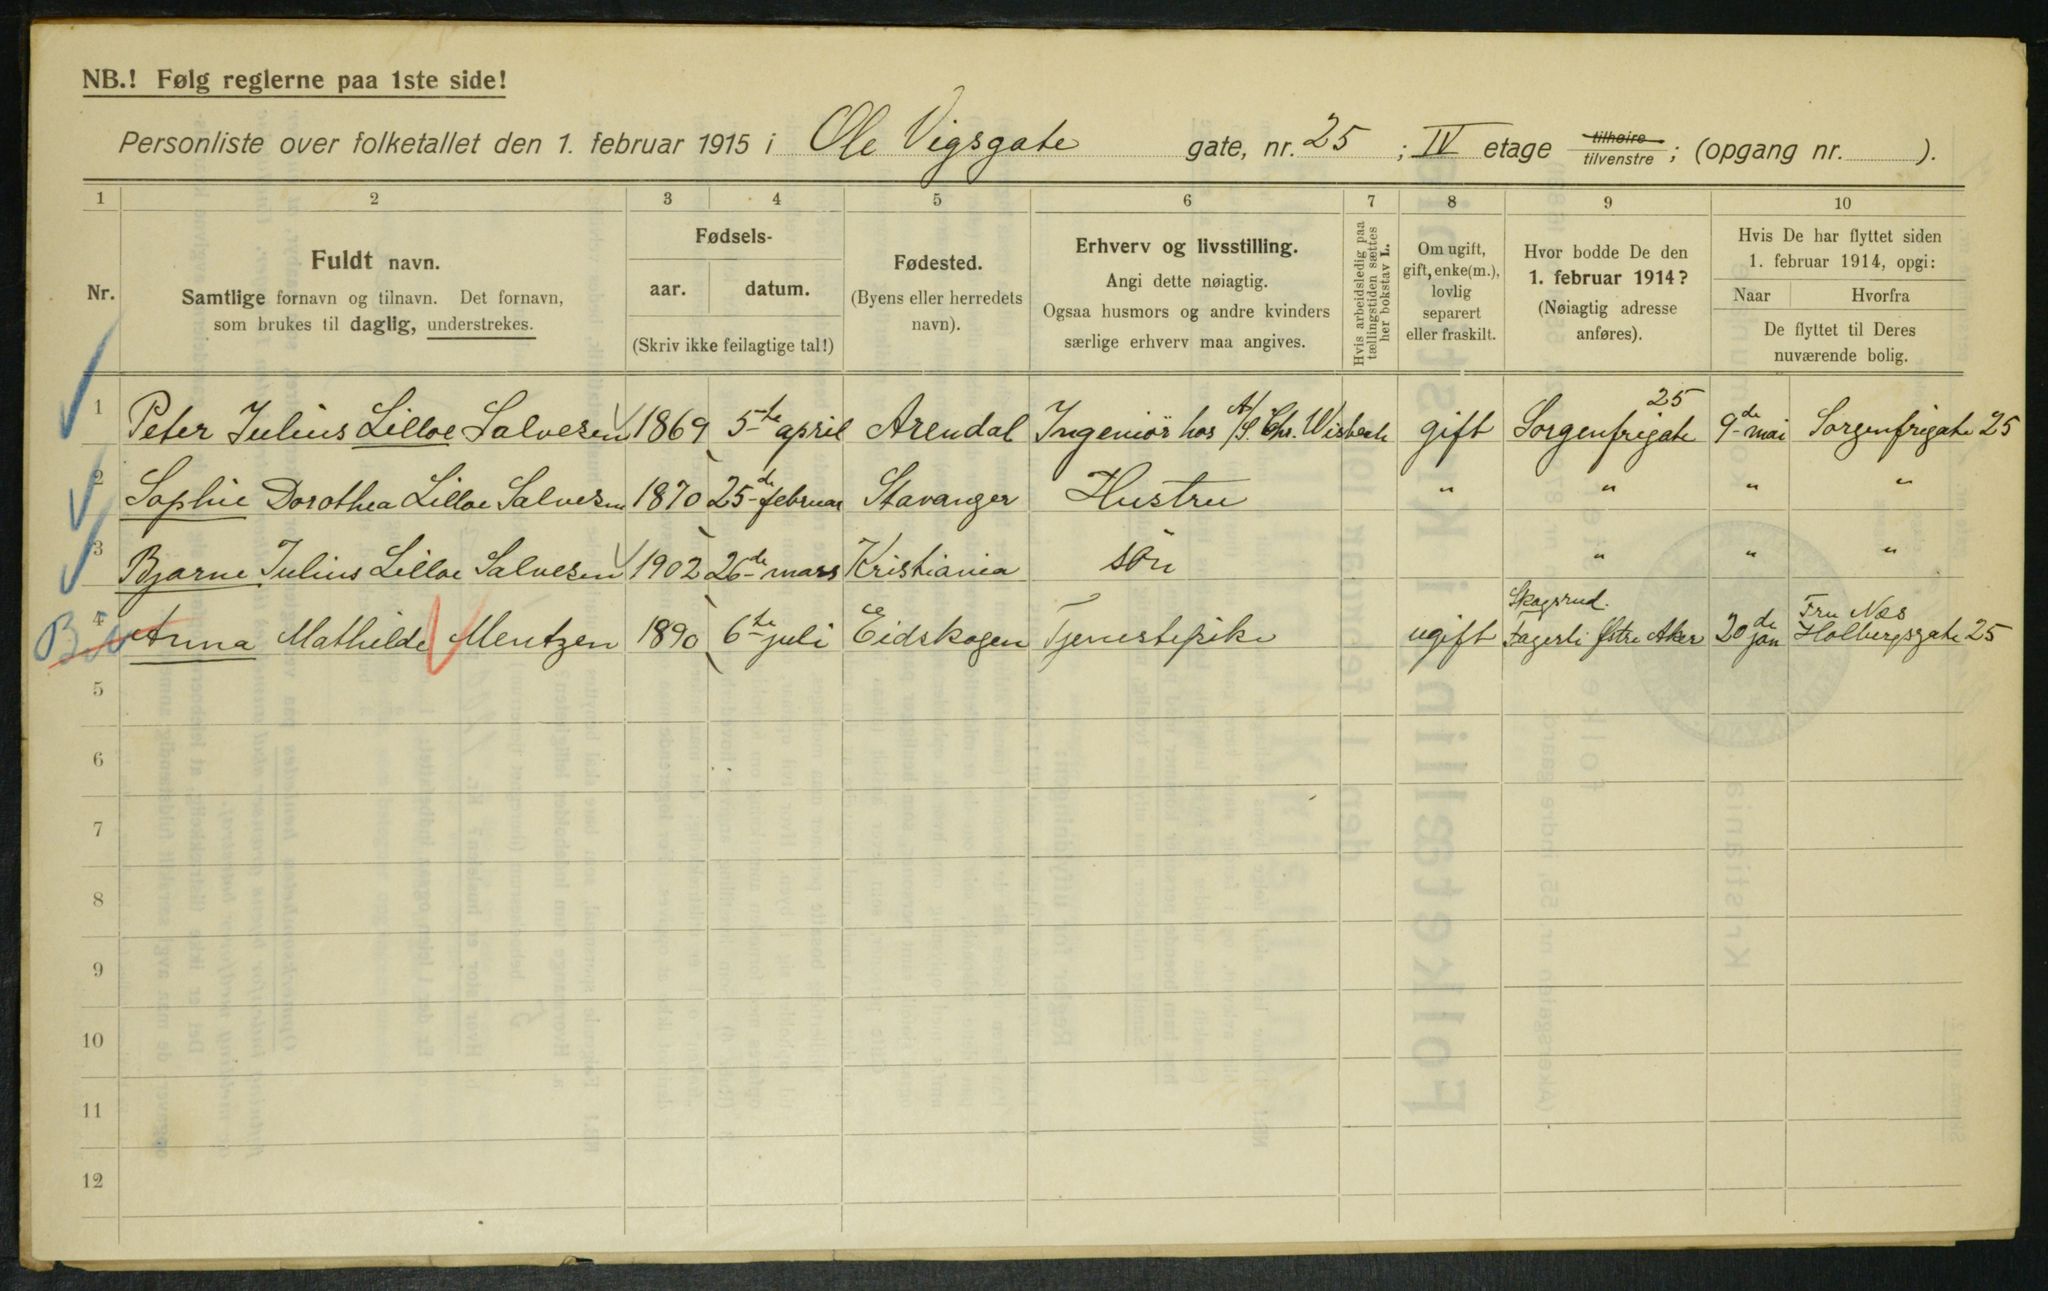 NB.! Følg reglerne paa 1ste side!
Personliste over folketallet den 1. februar 1915 i Ole Vigsgate gate, nr. 25 ; IV etage tilhøire tilvenstre ; (opgang nr. ).
1 2 3 4 5 6 7 8 9 10
Nr.
Fuldt navn.
Samtlige fornavn og tilnavn. Det fornavn,
som brukes til daglig, understrekes.
Fødsels-
aar. datum.
(Skriv ikke feilagtige tal!)
Fødested.
(Byens eller herredets
navn).
Erhverv og livsstilling.
Angi dette nøiagtig.
Ogsaa husmors og andre kvinders
særlige erhverv maa angives.
Hvis arbeidsledig paa
tællingstiden sættes
her bokstav L.
Om ugift,
gift, enke(m.),
lovlig
separert
eller fraskilt.
Hvor bodde De den
1. februar 1914?
(Nøiagtig adresse
anføres).
Hvis De har flyttet siden
1. februar 1914, opgi:
Naar Hvorfra
De flyttet til Deres
nuværende bolig.
1 Peter Julius Lilloe Salvesen 1869 5te april Arendal Ingeniör hos A/S. Chr. Wisbech gift Sorgenfrigate 25 9de mai Sorgenfrigate 25
2 Sophie Dorothea Lilloe Salvesen 1870 25de februar Stavanger Hustru " " " "
3 Bjarne Julius Lilloe Salvesen 1902 26de mars Kristiania sön " " "
4 Anna Mathilde Mentzen 1890 6te juli Eidskogen Tjenestepike ugift Skogsrud. Fagerli Østre Aker 20de jan Fru Næs Holbergsgate 25
5
6
7
8
9
10
11
12